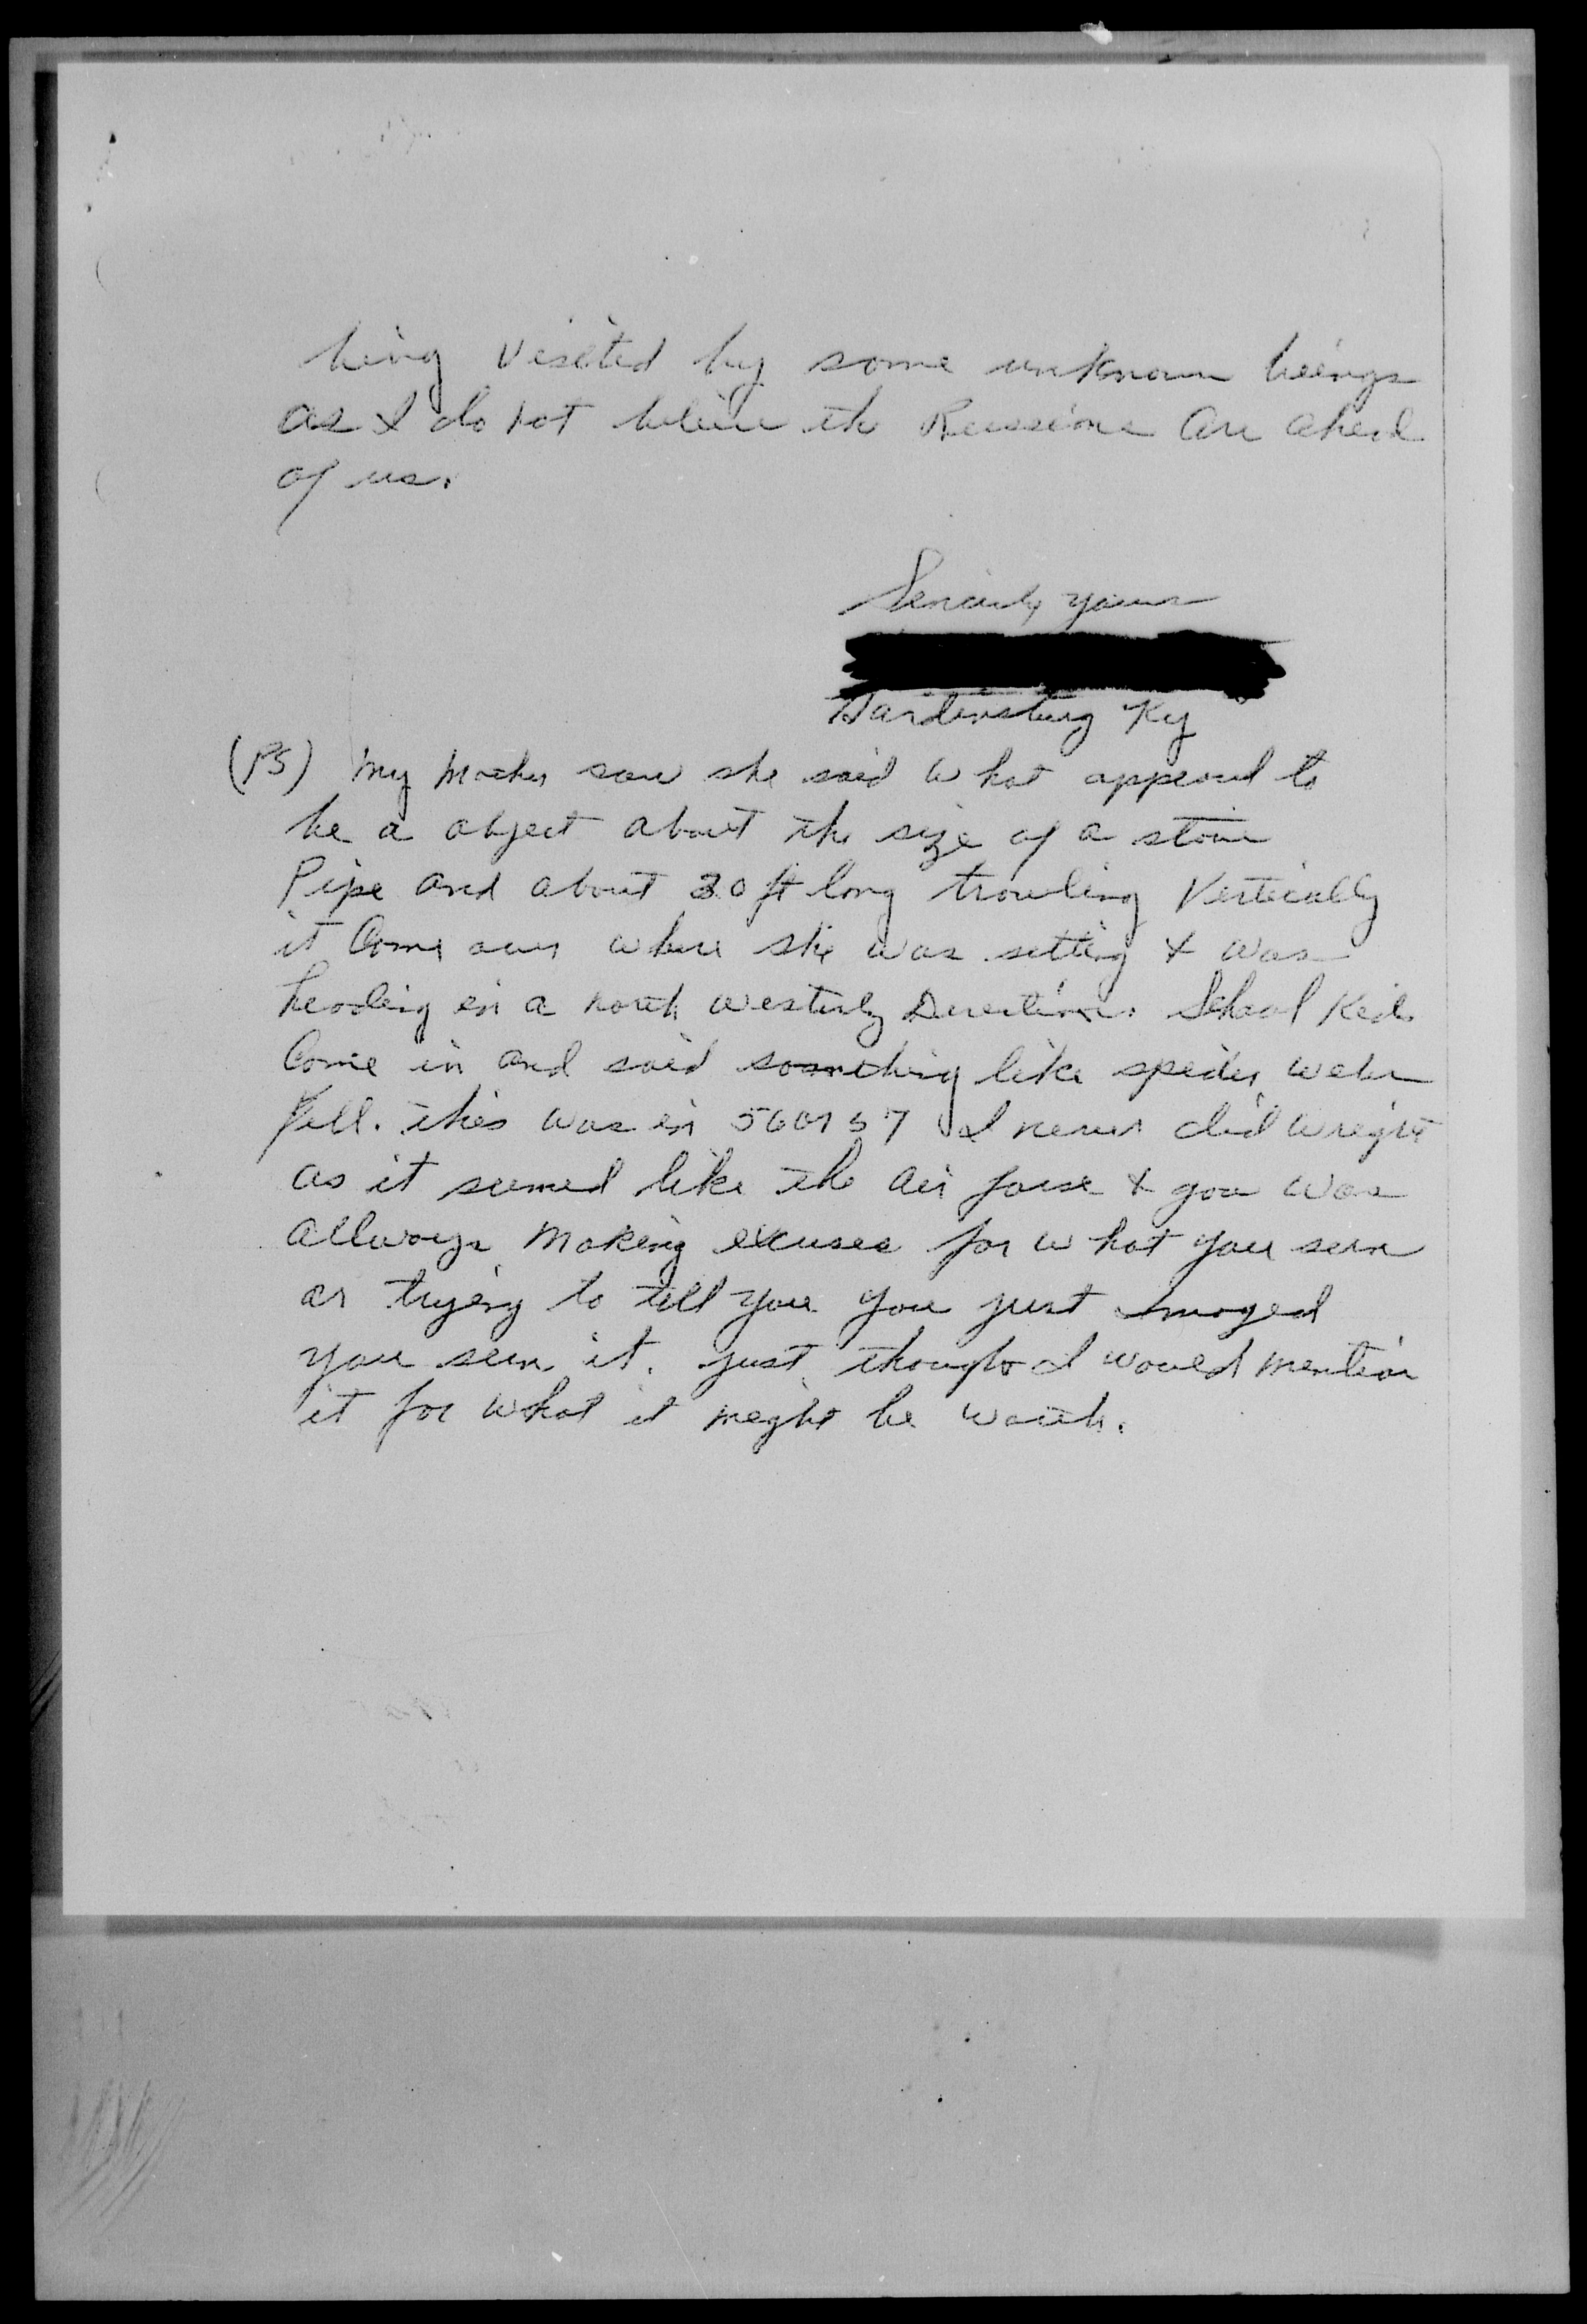 being visited by some unknown beings
as I do not believe the Russions are ahead
of us.
Sincerly yours
Hardinsburg Ky
(PS) My Mother saw she said what appeard to
be a object about the size of a stove
Pipe and about 30 ft long traveling Vertically
it Come over where she was setting & was
heading in a north westerly Direction. School Kids
Come in and said something like spider webs
fell. this was in 56 or 57 I never did wright
as it seemed like the air forse & you was
allways Making excuses for what you seen
or trying to tell you you just Imaged
you seen it. just thought I would mention
it for what it might be worth.